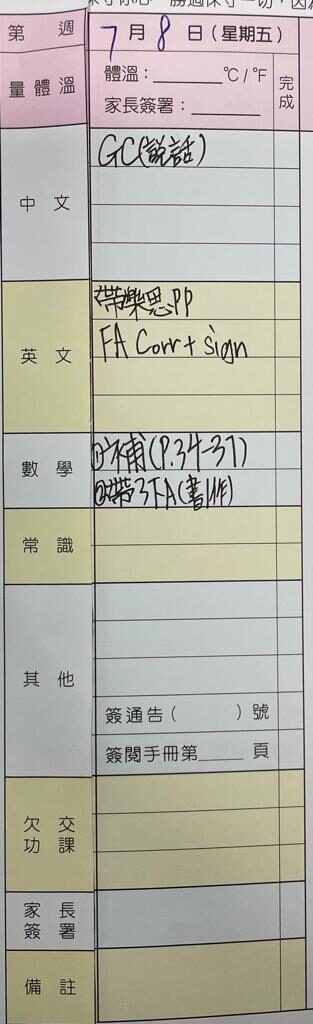 第 週
7月8日(星期五)
量體溫
體溫:______℃/℉
家長簽署:______
完成
中文
GC(說話)
英文
帶樂思PP
FA Corr + sign
數學
①補(P.34-37)
②帶3TA(書作)
常識
其他
簽通告( )號
簽閱手冊第____頁
欠交功課
家長簽署
備註